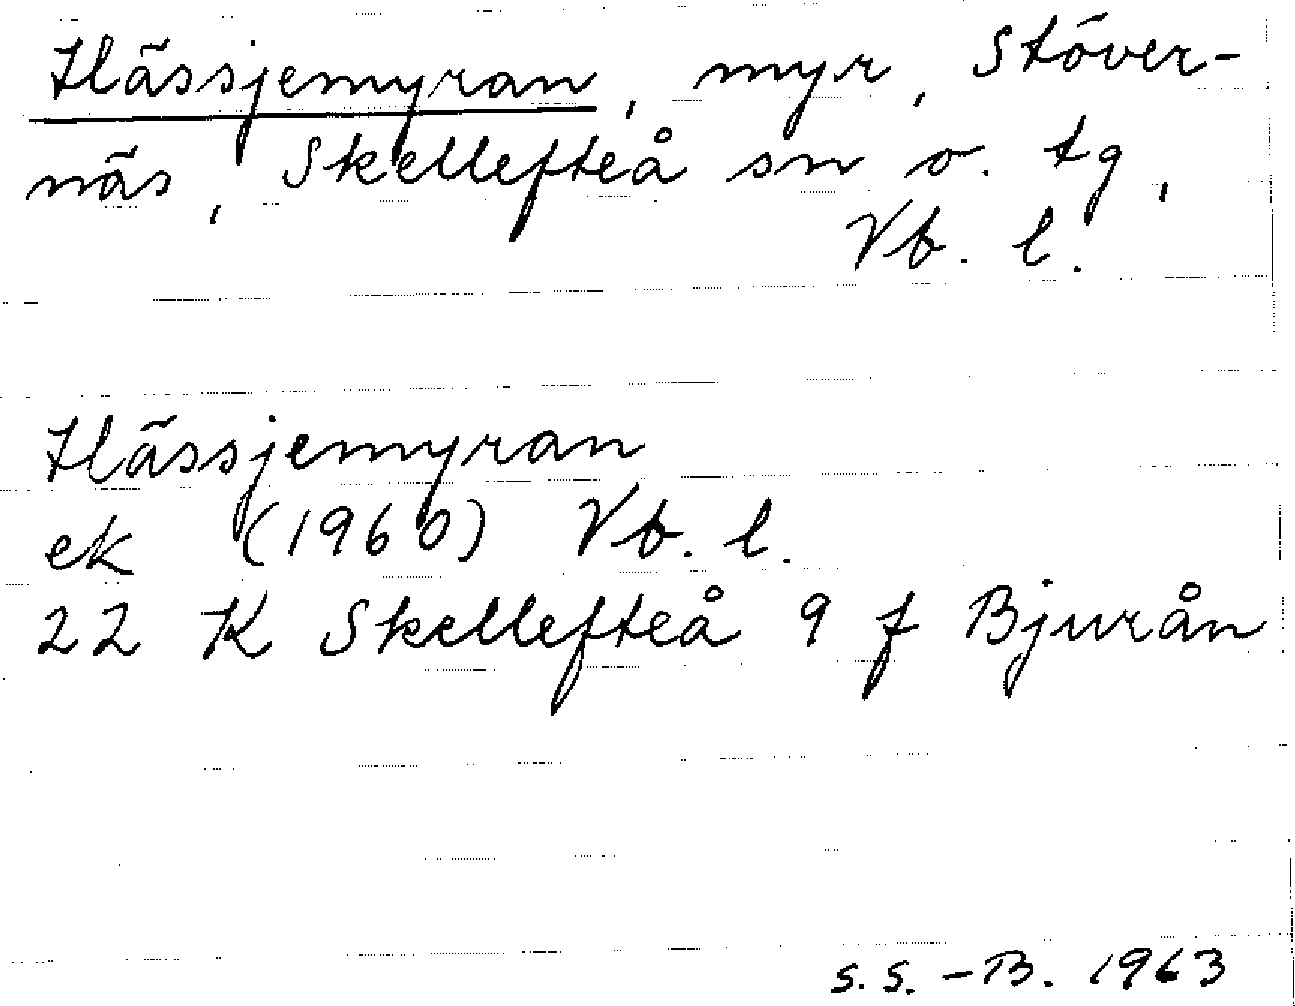 Hässjemyran, myr, Stöver-
näs, Skellefteå sn o. tg,
Vb. l.
Hässjemyran
ek (1960) Vb. l.
22 K Skellefteå 9 f Bjurån
S.S.-B. 1963